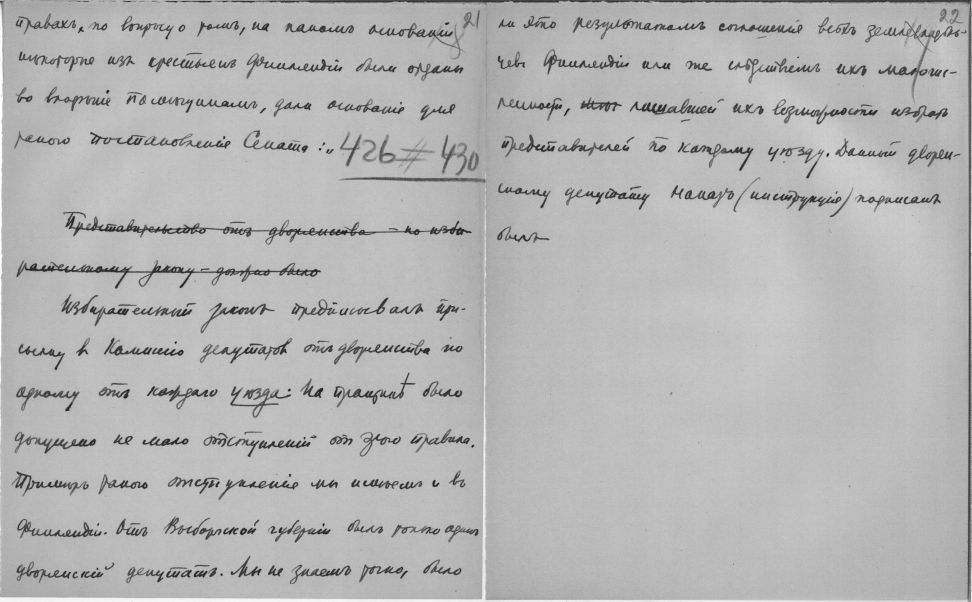 21
правахъ, по вопросу о томъ, на какомъ основаніи
некоторые изъ крестьянъ Финляндіи были отданы
во владеніе помещикамъ, дали основаніе для
такого постановленія Сената: „426 # 430
Представительство отъ дворянства – по изби
рательному закону – должно было
Избирательный законъ предписывалъ при-
сылку в Комиссію депутатов отъ дворянства по
одному отъ каждаго уѣзда: На практикѣ было
допущено не мало отступленій от этого правила.
Примѣръ такого отступленія мы имѣемъ и въ
Финляндіи. Отъ Выборгской губерніи былъ только один
дворянскій депутатъ. Мы не знаемъ точно, было
22
ли это результатомъ соглашенія всѣхъ землевладѣль-
цевъ Финляндіи или же слѣдствіемъ ихъ малочис-
ленности, лишавшей ихъ возможности избрать
представителей по каждому уѣзду. Данный дворян-
скому депутату наказъ (инструкція) подписанъ
былъ